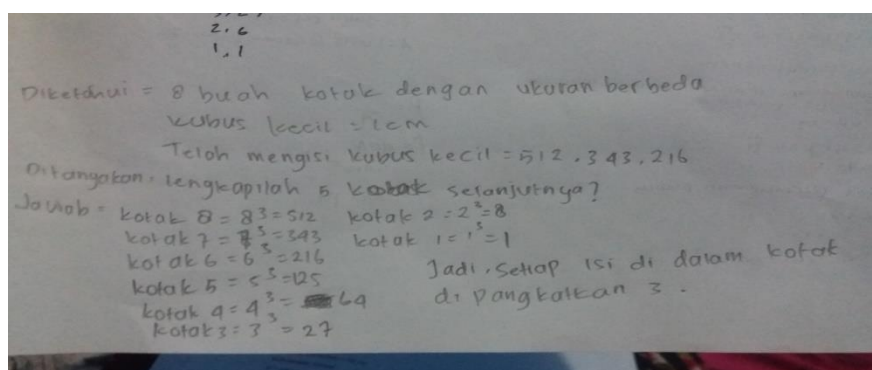 2.6
1.1
Diketahui = 8 buah kotak dengan ukuran berbeda
kubus kecil = 1cm
Teloh mengisi kubus kecil = 512, 343, 216
Ditanyakan. lengkapilah 5 kotak selanjutnya?
Jawab = kotak 8 = 8³ = 512
kotak 7 = 7³ = 343
kotak 6 = 6³ = 216
kotak 5 = 5³ = 125
kotak 4 = 4³ = 64
kotak 3 = 3³ = 27
kotak 2 = 2³ = 8
kotak 1 = 1³ = 1
Jadi, setiap isi di dalam kotak
di pangkatkan 3.